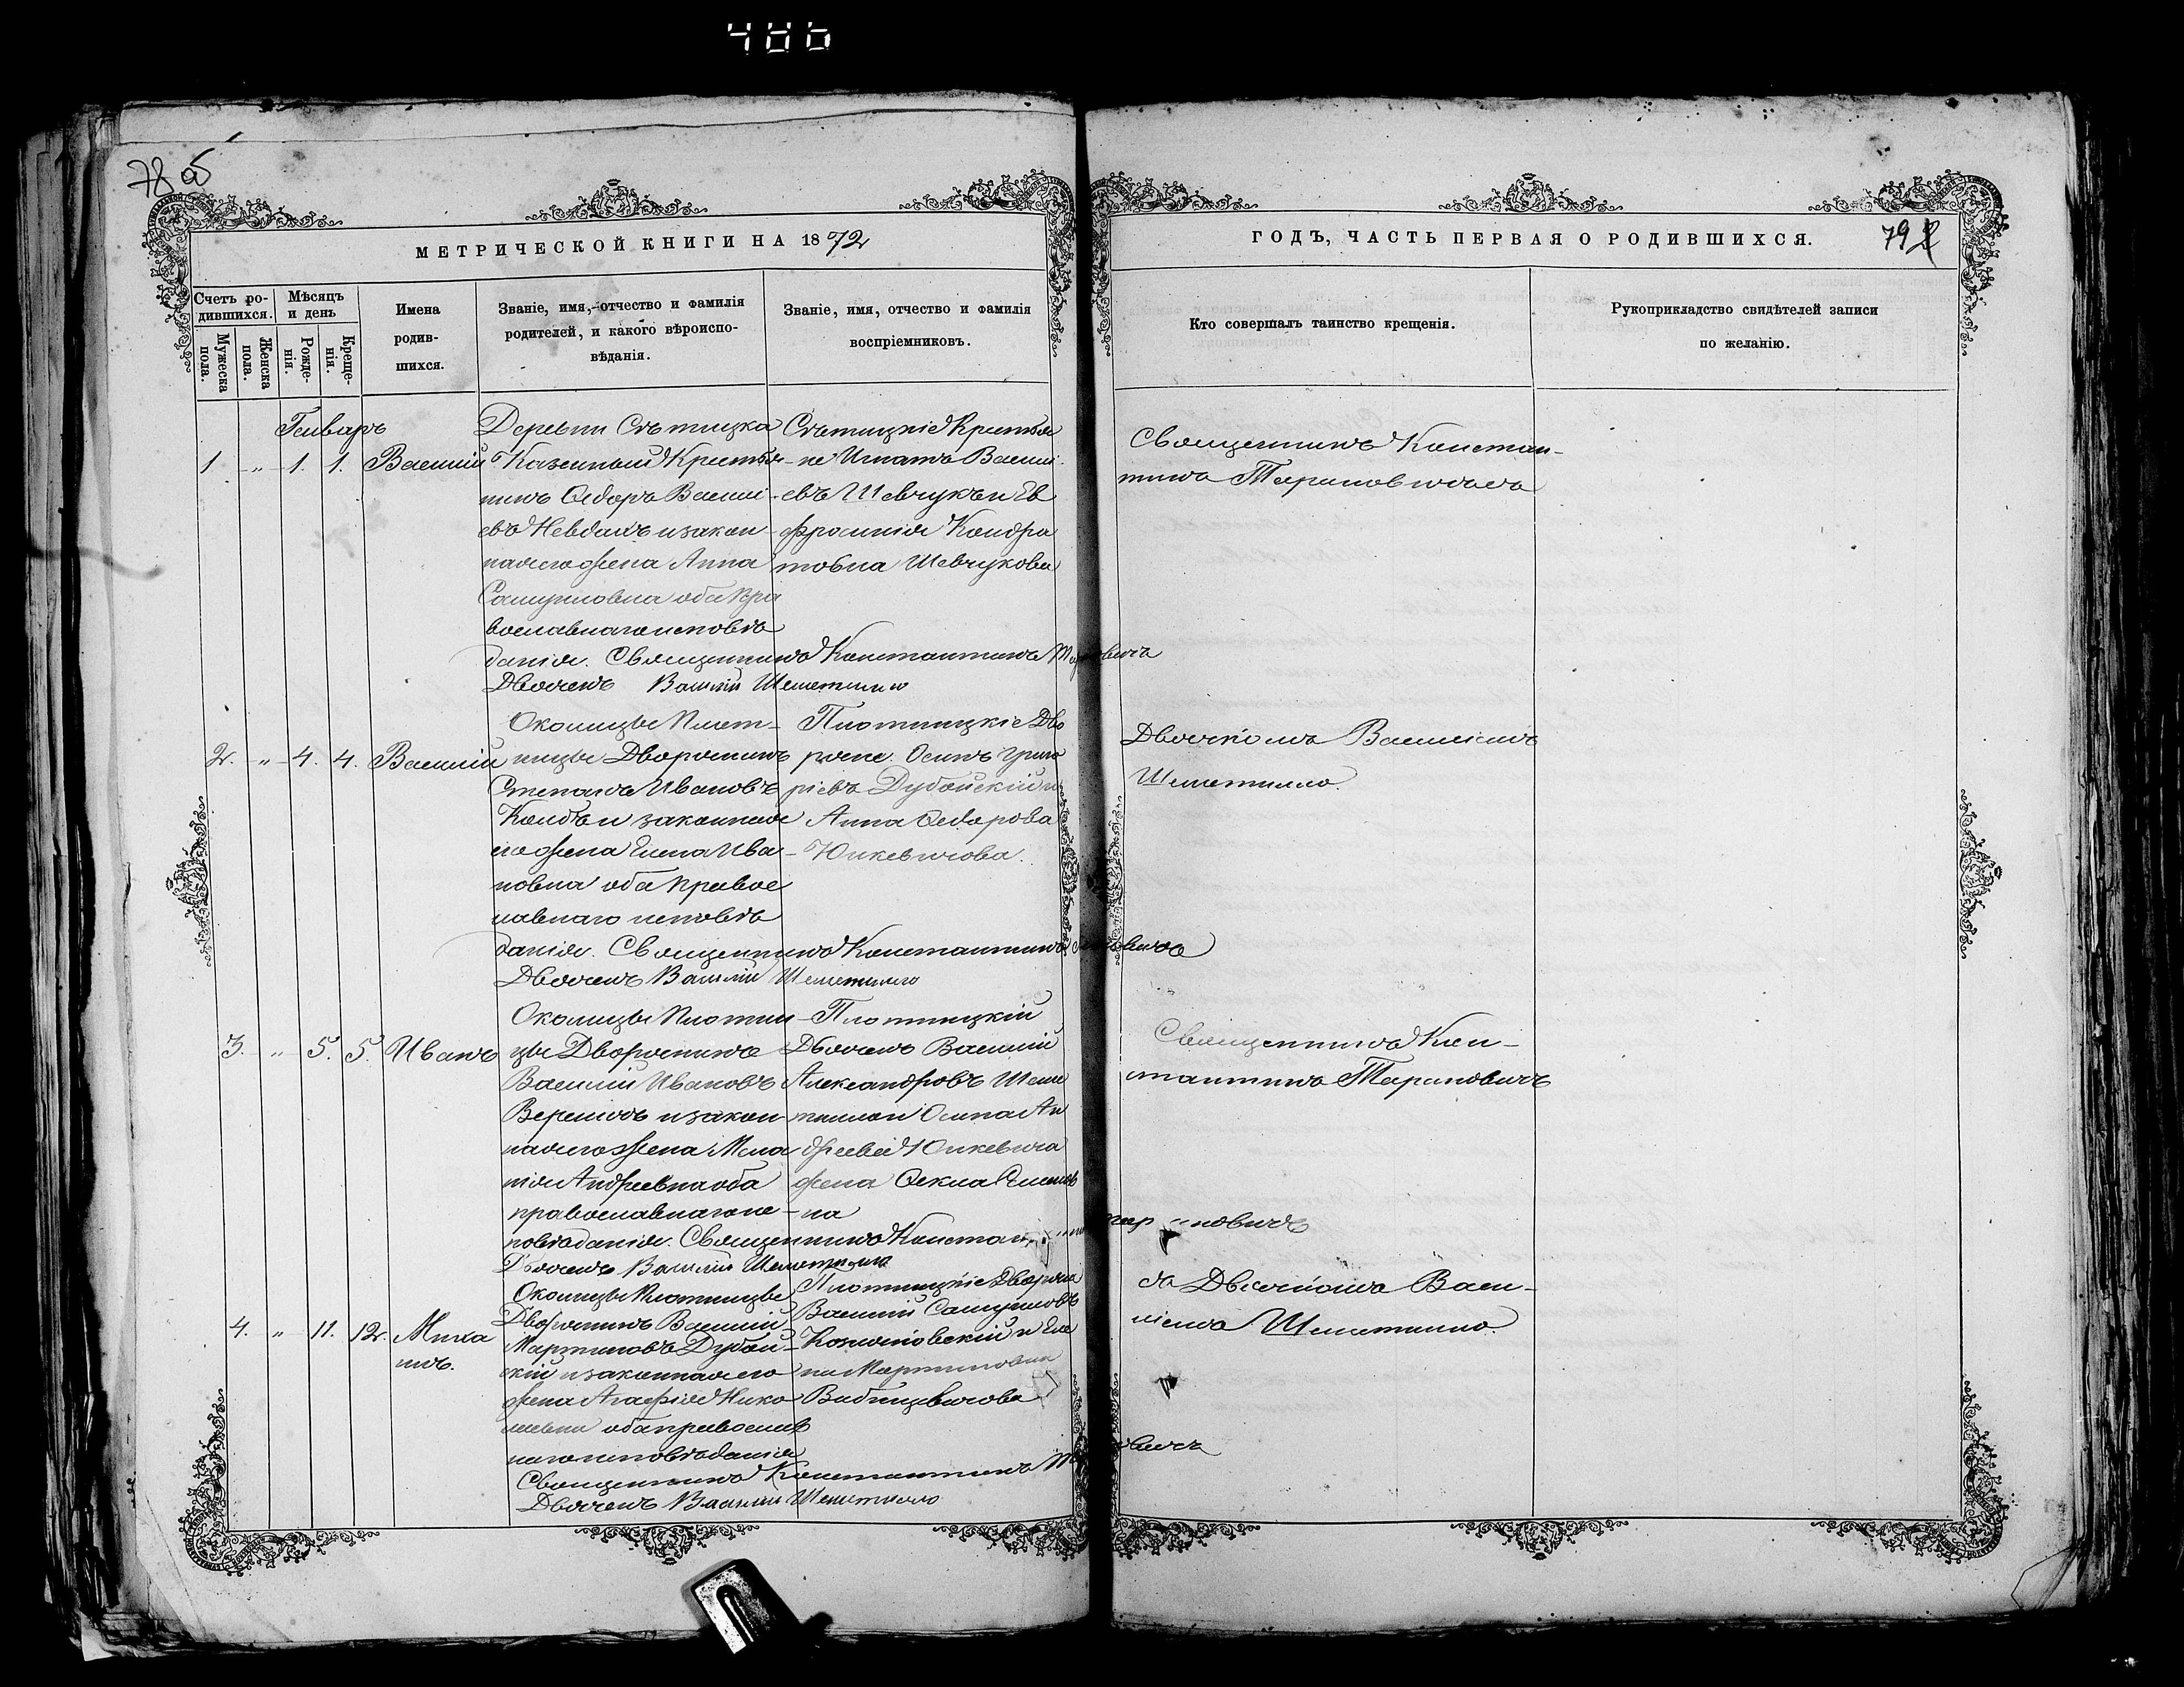 486
78 об
МЕТРИЧЕСКОЙ КНИГИ НА 1872
ГОДЪ, ЧАСТЬ ПЕРВАЯ О РОДИВШИХСЯ.
79
Счетъ ро-
дившихся.
Мужеска
пола.
Женска
пола.
Мѣсяцъ
и день
Рожде-
нія.
Креще-
нія.
Имена
родив-
шихся.
Званіе, имя, отчество и фамилія
родителей, и какого вѣроиспо-
вѣданія.
Званіе, имя, отчество и фамилія
воспріемниковъ.
Кто совершалъ таинство крещенія.
Рукоприкладство свидѣтелей записи
по желанію.
Генварь
1 „ 1. 1. Василій
Деревни Сѣтицка
Казенный Крестья
нинъ Ѳедоръ Васили-
евъ Невдахъ и закон-
ная его жена Анна
Самуиловна оба пра
вославнаго исповѣ
данія. Священникъ Константинъ Тарановичъ
Дьячекъ Василій Шеметилло
Сѣтицкіе Крестья
не Игнатъ Васили-
евъ Шевчукъ и Ев
фросинія Кондра
товна Шевчукова
Священникъ Констан-
тинъ Тарановичъ
2. „ 4. 4. Василій
Околицы Плот-
ницы Дворянинъ
Степанъ Ивановъ
Колбъ и законная
его жена Елена Ива-
новна оба правос
лавнаго исповѣ
данія. Священникъ Константинъ Тарановичъ
Дьячекъ Василій Шеметилло
Плотницкіе Дво
ряне Осипъ Григо
ріевъ Дубойскій и
Анна Ѳедорова
Юнкевичова.
Дьячкомъ Василіемъ
Шеметилло.
3. „ 5. 5. Иванъ
Околицы Плотни-
цы Дворянинъ
Василій Ивановъ
Вереничъ и закон
ная его жена Мела
нія Андреевна оба
православнаго ис-
повѣданія. Священникъ Константинъ Тарановичъ
Дьячекъ Василій Шеметилло
Плотницкій
Дьячекъ Василій
Александровъ Шеме
тилло и Осипа Ан
дреева Юнкевича
жена Ѳекла
на
Священникъ Кон-
стантинъ Тарановичъ
4. „ 11. 12. Миха
илъ.
Околицы Плотницы
Дворянинъ Василій
Мартиновъ Дубой-
скій и законная его
жена Агафія Нико
лаевна оба православ
наго исповѣданія
Священникъ Константинъ Тарановичъ
Дьячекъ Василій Шеметилло
Плотницкіе Дворяне
Василій Самуиловъ
и Еле
на Мартиновна
съ Дьячкомъ Васи-
ліемъ Шеметилло.